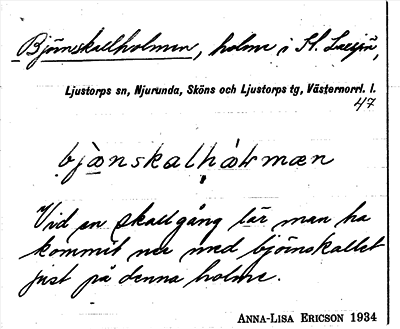 Björnskallholmen, holme i St. Laxsjön,
Ljustorps sn, Njurunda, Sköns och Ljustorps tg, Västernorrl. l.
47
bjæ̀nskalhàɫmæn
Vid en skallgång lär man ha
kommit ner med björnskallet
just på denna holme.
ANNA-LISA ERICSON 1934